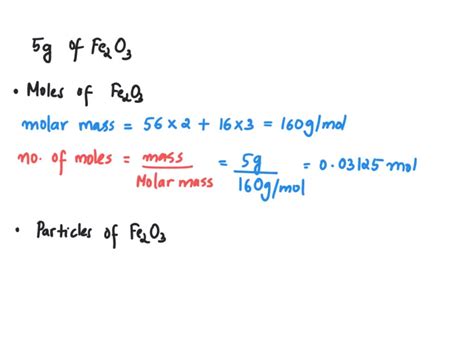 5g of Fe₂O₃
• Moles of Fe₂O₃
molar mass = 56 x 2 + 16 x 3 = 160g/mol
no. of moles = mass / Molar mass = 5g / 160g/mol = 0.03125 mol
• Particles of Fe₂O₃